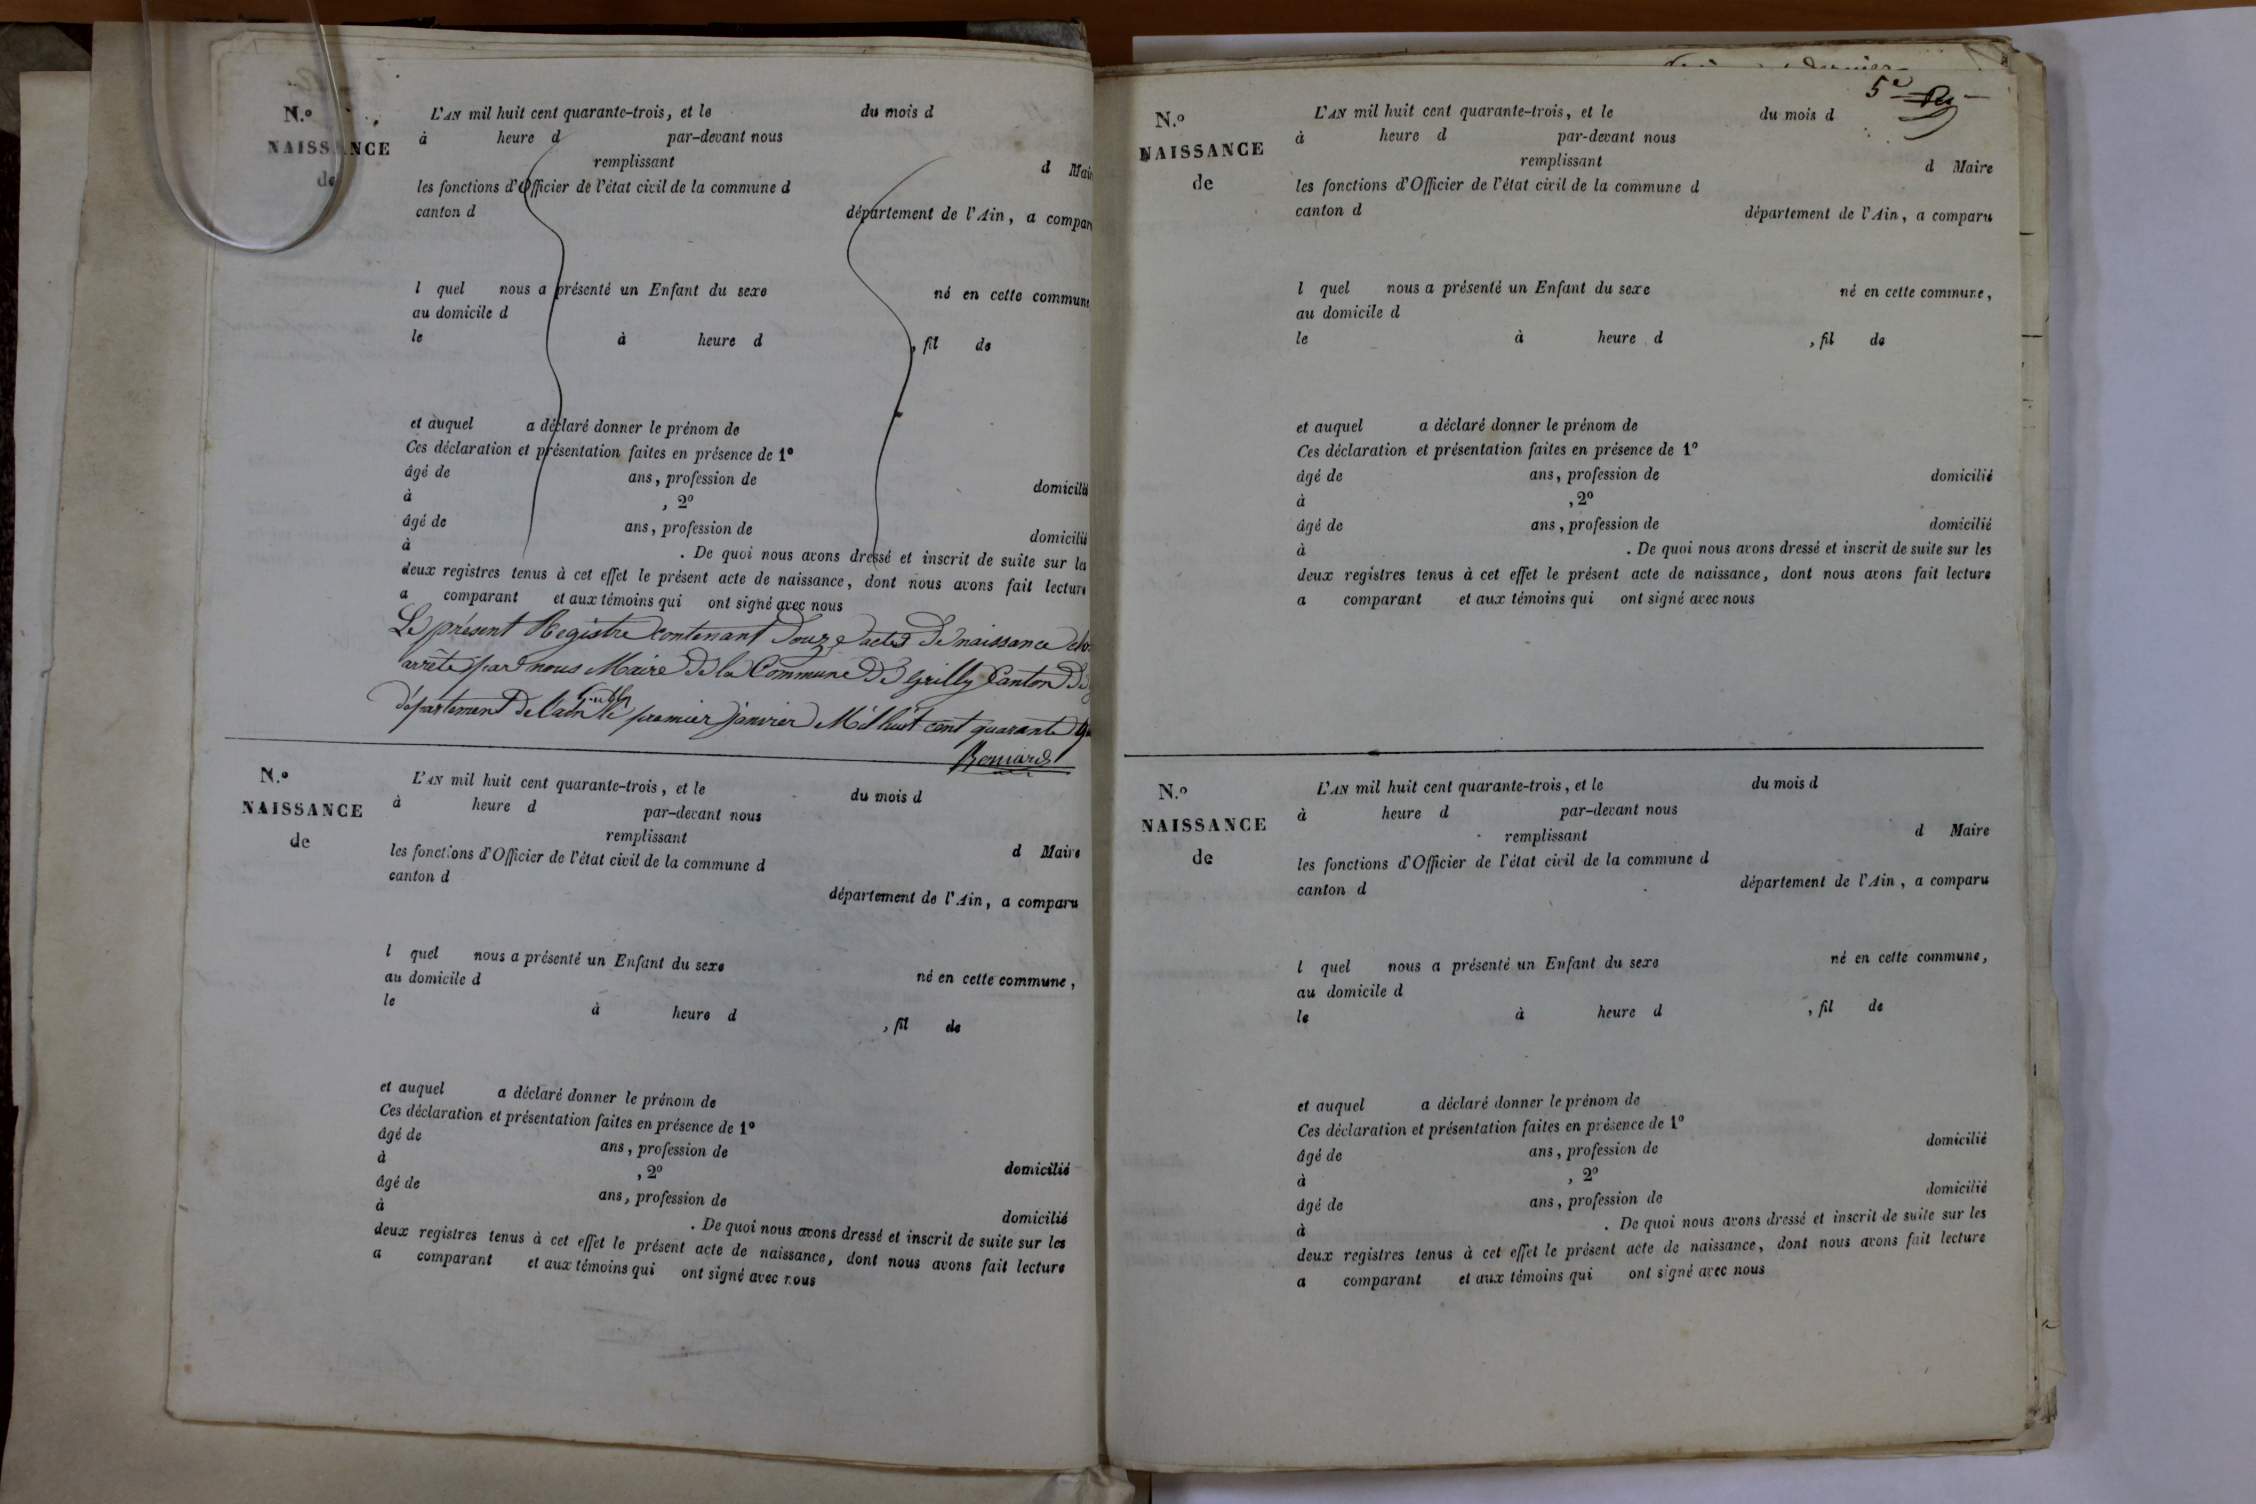 N.º
NAISSANCE
de
L'AN mil huit cent quarante-trois, et le du mois d
à heure d par-devant nous
remplissant d Mair
les fonctions d'Officier de l'état civil de la commune d
canton d département de l'Ain, a compar
l quel nous a présenté un Enfant du sexe né en cette commune
au domicile d
le à heure d , fil de
et auquel a déclaré donner le prénom de
Ces déclaration et présentation faites en présence de 1º
âgé de ans, profession de domicilié
à , 2º
âgé de ans, profession de domicilié
à . De quoi nous avons dressé et inscrit de suite sur les
deux registres tenus à cet effet le présent acte de naissance, dont nous avons fait lecture
a comparant et aux témoins qui ont signé avec nous
Le présent Registre contenant Douze actes de naissance clos
arrêté par nous Maire de la Commune de Grilly Canton de
département de l'ain le premier janvier Mil huit cent quarante
N.º
NAISSANCE
de
L'AN mil huit cent quarante-trois, et le du mois d
à heure d par-devant nous
remplissant d Maire
les fonctions d'Officier de l'état civil de la commune d
canton d département de l'Ain, a comparu
l quel nous a présenté un Enfant du sexe né en cette commune,
au domicile d
le à heure d , fil de
et auquel a déclaré donner le prénom de
Ces déclaration et présentation faites en présence de 1º
âgé de ans, profession de domicilié
à , 2º
âgé de ans, profession de domicilié
à . De quoi nous avons dressé et inscrit de suite sur les
deux registres tenus à cet effet le présent acte de naissance, dont nous avons fait lecture
a comparant et aux témoins qui ont signé avec nous
5e
N.º
NAISSANCE
de
L'AN mil huit cent quarante-trois, et le du mois d
à heure d par-devant nous
remplissant d Maire
les fonctions d'Officier de l'état civil de la commune d
canton d département de l'Ain, a comparu
l quel nous a présenté un Enfant du sexe né en cette commune,
au domicile d
le à heure d , fil de
et auquel a déclaré donner le prénom de
Ces déclaration et présentation faites en présence de 1º
âgé de ans, profession de domicilié
à , 2º
âgé de ans, profession de domicilié
à . De quoi nous avons dressé et inscrit de suite sur les
deux registres tenus à cet effet le présent acte de naissance, dont nous avons fait lecture
a comparant et aux témoins qui ont signé avec nous
N.º
NAISSANCE
de
L'AN mil huit cent quarante-trois, et le du mois d
à heure d par-devant nous
remplissant d Maire
les fonctions d'Officier de l'état civil de la commune d
canton d département de l'Ain, a comparu
l quel nous a présenté un Enfant du sexe né en cette commune,
au domicile d
le à heure d , fil de
et auquel a déclaré donner le prénom de
Ces déclaration et présentation faites en présence de 1º
âgé de ans, profession de domicilié
à , 2º
âgé de ans, profession de domicilié
à . De quoi nous avons dressé et inscrit de suite sur les
deux registres tenus à cet effet le présent acte de naissance, dont nous avons fait lecture
a comparant et aux témoins qui ont signé avec nous